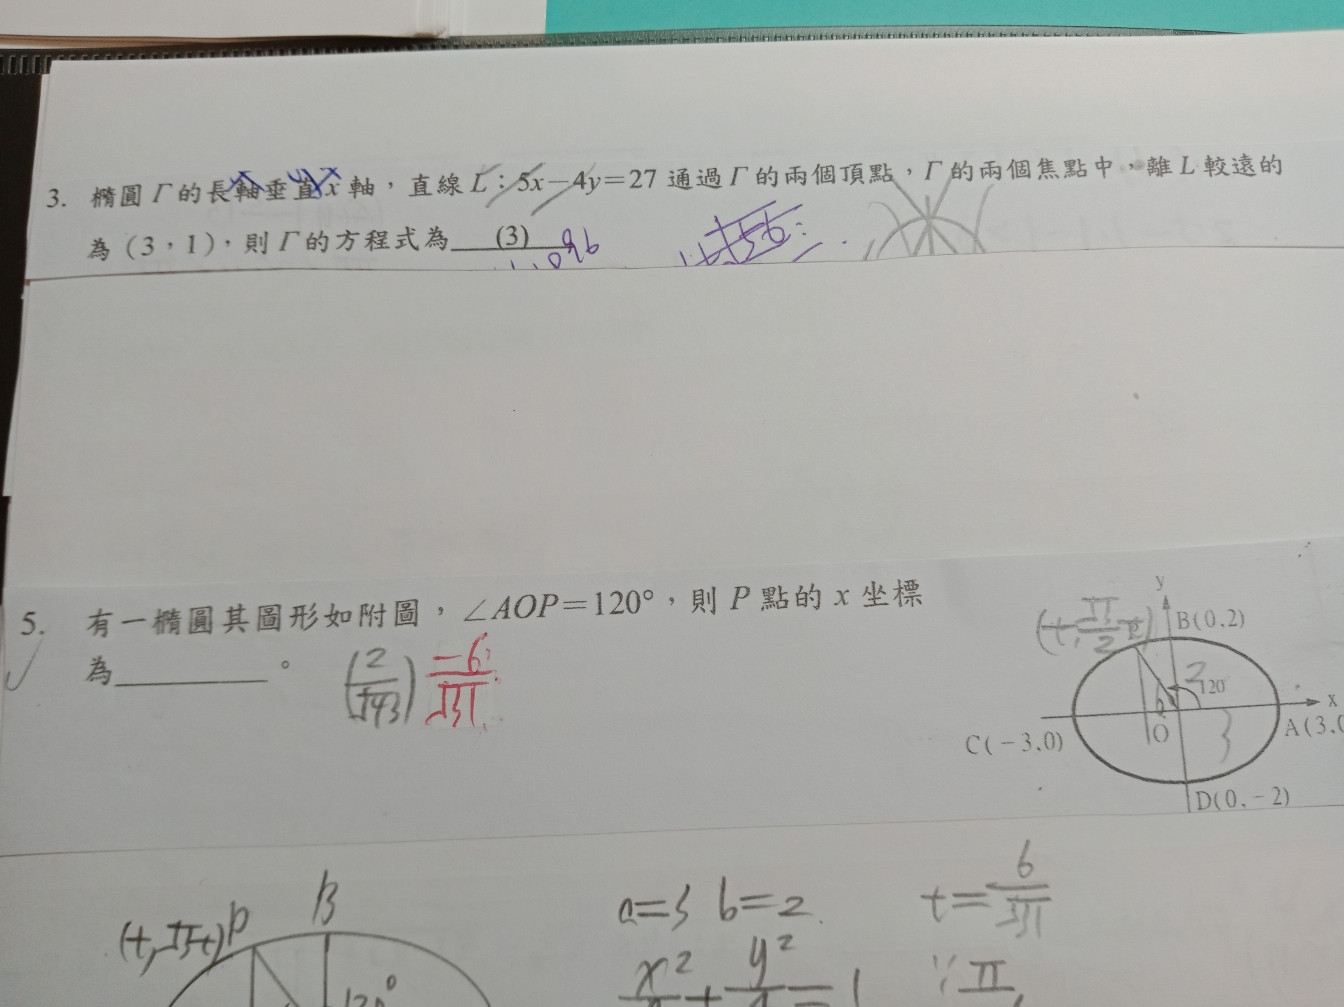 3. 橢圓 Γ 的長軸垂直 x 軸，直線 L：5x－4y＝27 通過 Γ 的兩個頂點，Γ 的兩個焦點中，離 L 較遠的
為（3，1），則 Γ 的方程式為 (3)
5. 有一橢圓其圖形如附圖，∠AOP＝120°，則 P 點的 x 坐標
為＿＿＿＿＿。
(2/√43) -6/√31
y
B(0,2)
2
120
x
C(-3,0)
O
3
A(3,
D(0,-2)
B
P
120°
a=3 b=2
t=6/√31
x² + y² = 1